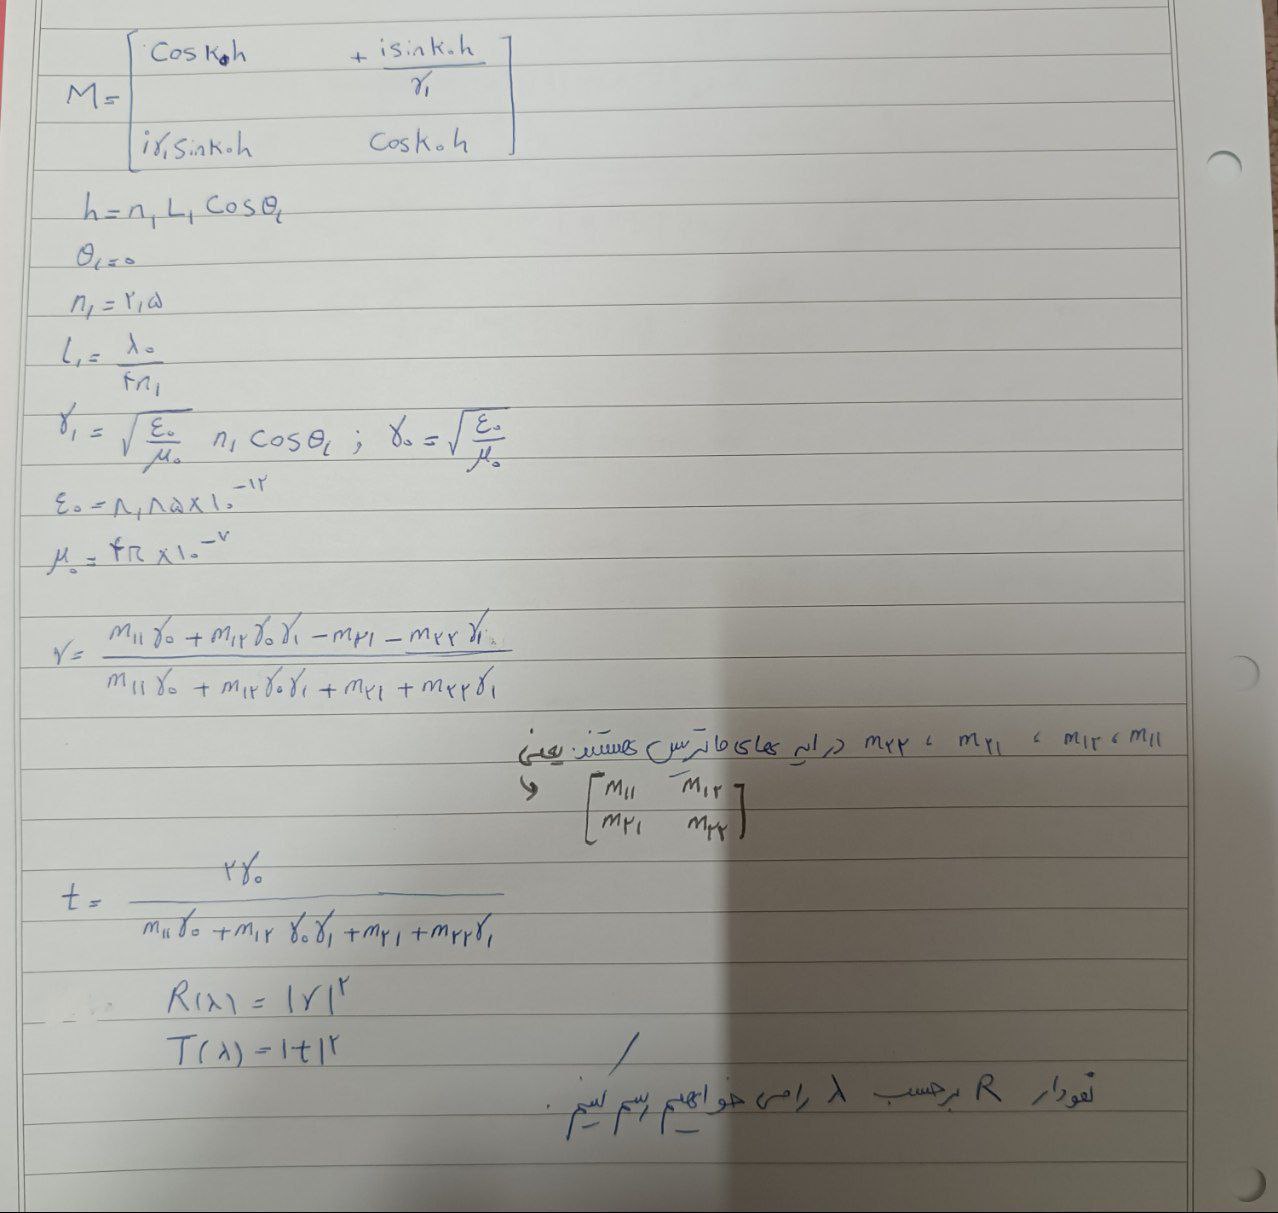 M = [ Cos k₀h    + i sin k₀h / γ₁
iγ₁ sin k₀h    Cos k₀h ]
h = n₁ L₁ Cos θᵢ
θᵢ = ۰
n₁ = ۲,۵
L₁ = λ₀ / ۴n₁
γ₁ = √(ε₀/μ₀) n₁ Cos θᵢ ; γ₀ = √(ε₀/μ₀)
ε₀ = ۸,۸۵ × ۱۰^-۱۲
μ₀ = ۴π × ۱۰^-۷
r = (m۱۱ γ₀ + m۱۲ γ₀ γ₁ - m۲۱ - m۲۲ γ₁) / (m۱۱ γ₀ + m۱۲ γ₀ γ₁ + m۲۱ + m۲۲ γ₁)
m۱۱ ، m۱۲ ، m۲۱ ، m۲۲ درایه های ماتریس هستند یعنی
[ m۱۱ m۱۲
m۲۱ m۲۲ ]
t = ۲γ₀ / (m۱۱ γ₀ + m۱۲ γ₀ γ₁ + m۲۱ + m۲۲ γ₁)
R(λ) = |r|^۲
T(λ) = |t|^۲
نمودار R برحسب λ را می خواهیم رسم کنیم .